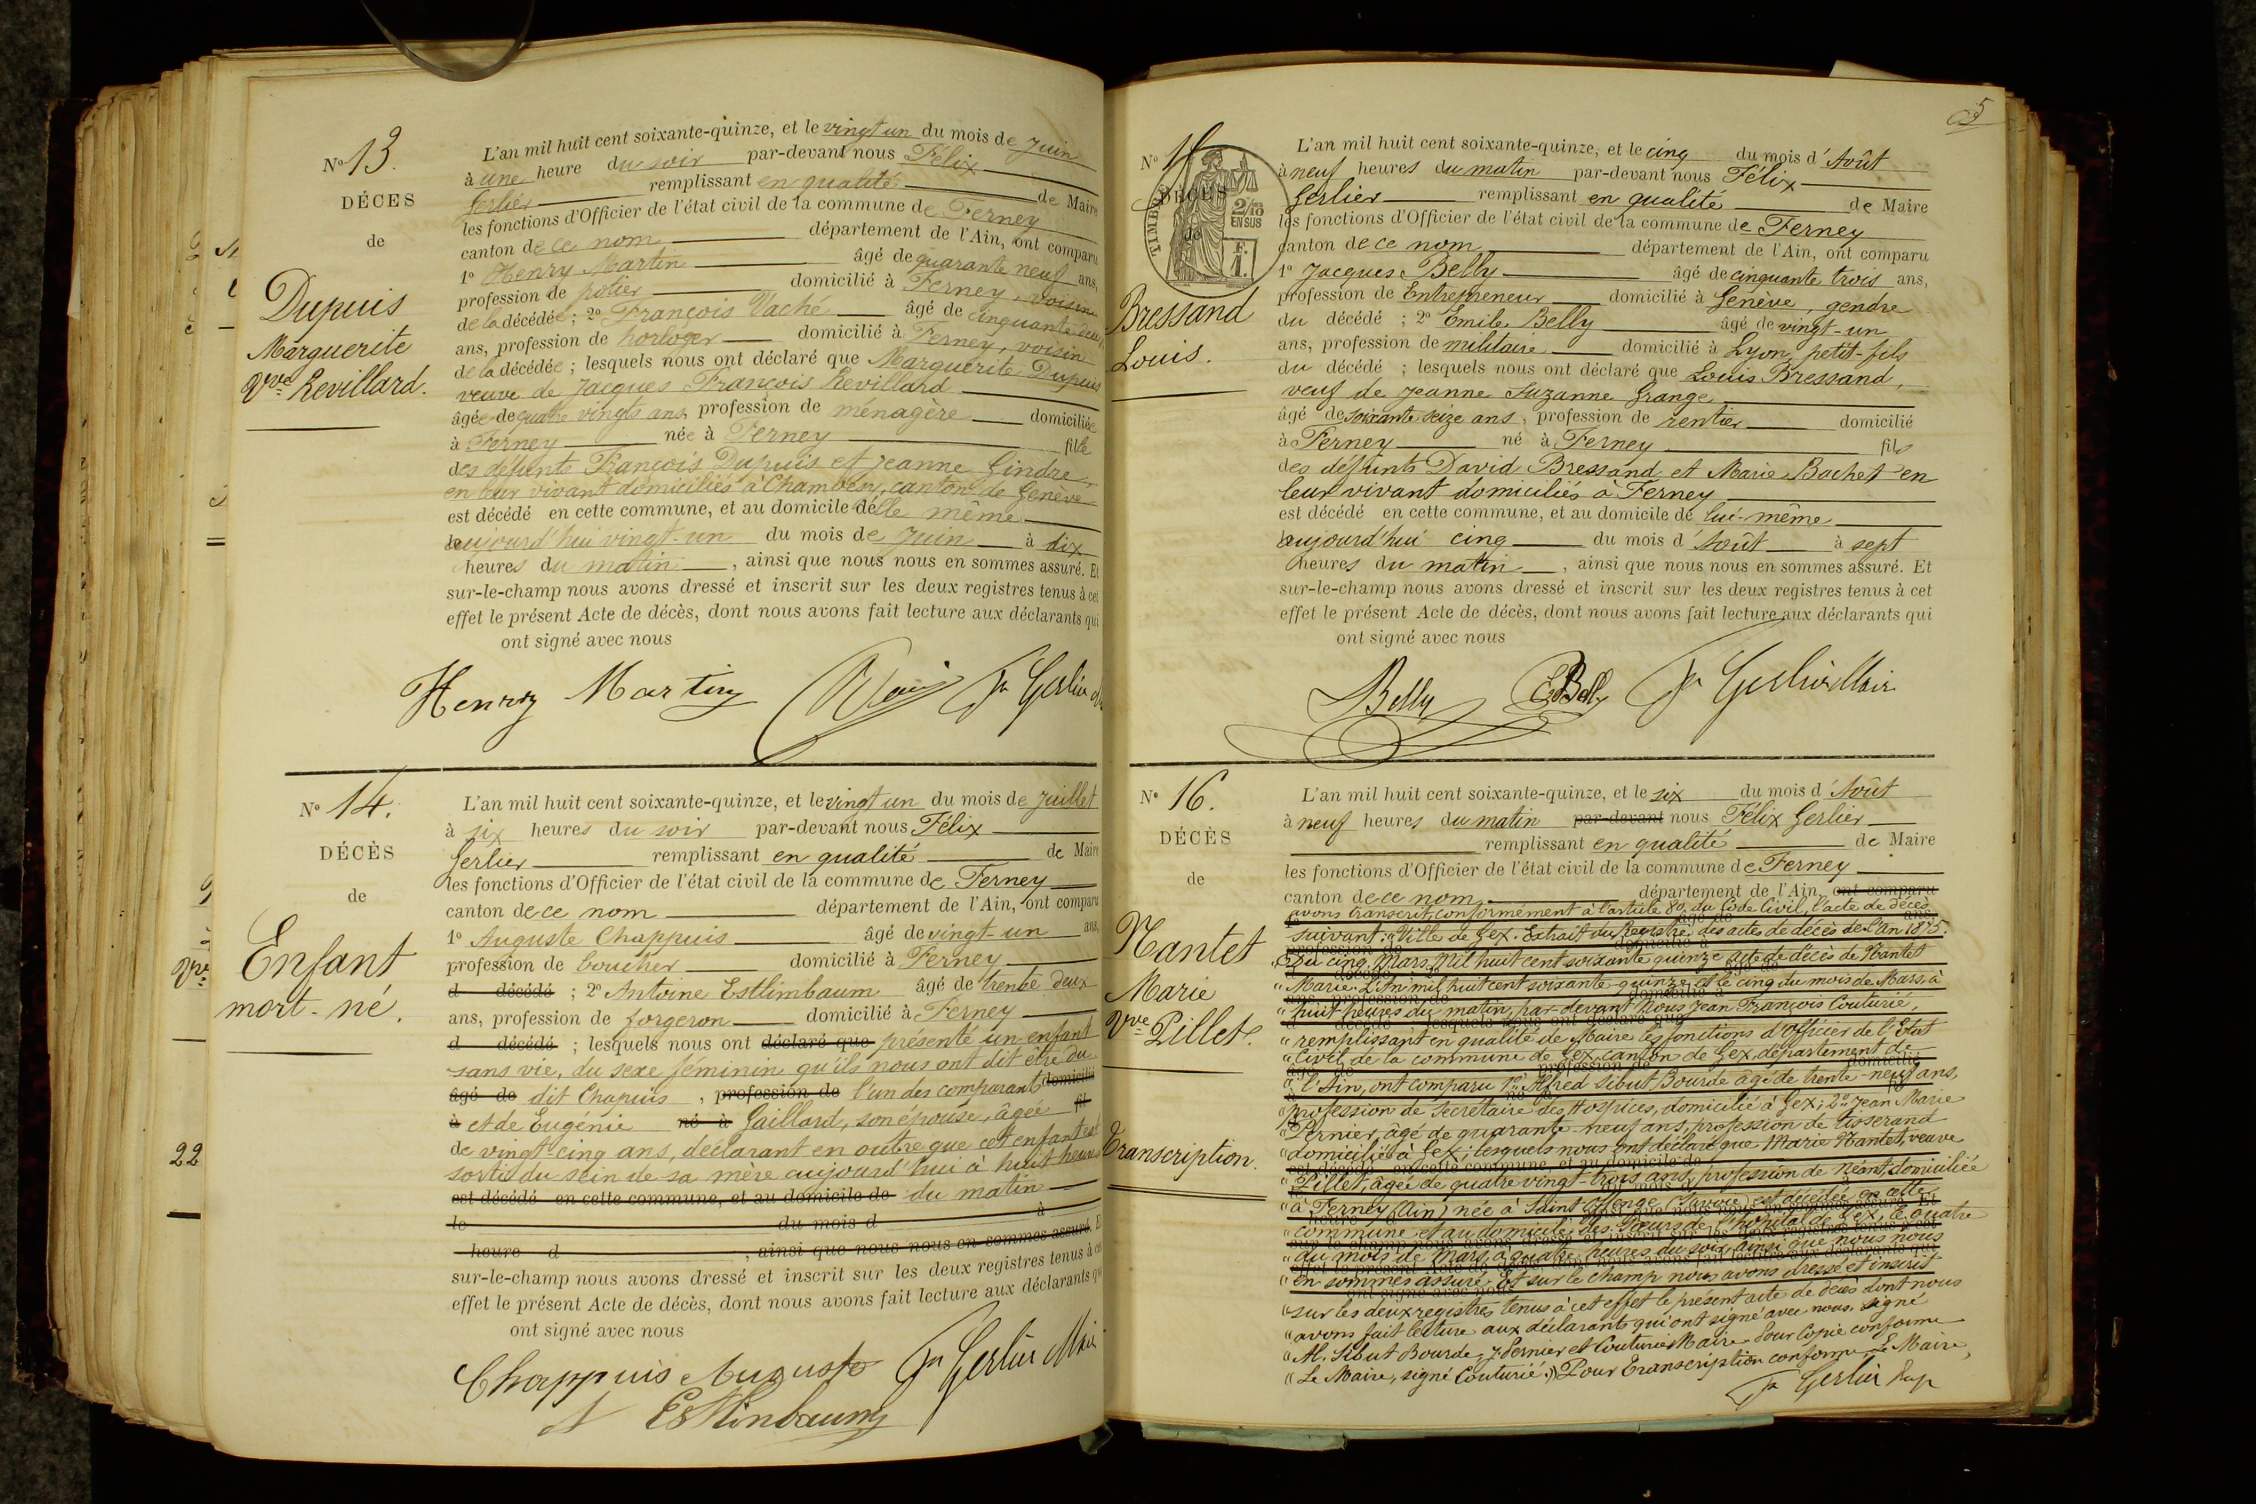 N° 13.
DÉCES
de
Dupuis
Marguerite
Vve Revillard.
L'an mil huit cent soixante-quinze, et le vingt un du mois de Juin
à une heure du soir par-devant nous Félix
Gerlier remplissant en qualité de Maire
les fonctions d'Officier de l'état civil de la commune de Ferney
canton de ce nom département de l'Ain, ont comparu
1° Henry Martin âgé de quarante neuf ans,
profession de potier domicilié à Ferney, voisin
de la décédée ; 2° François Vaché âgé de cinquante deux
ans, profession de horloger domicilié à Ferney, voisin
de la décédée ; lesquels nous ont déclaré que Marguerite Dupuis
veuve de Jacques François Revillard
âgée de quatre vingts ans, profession de ménagère domiciliée
à Ferney née à Ferney fille
des défunts François Dupuis et Jeanne Gindre,
en leur vivant domiciliés à Chambésy, canton de Genève
est décédé en cette commune, et au domicile d'elle même
aujourd'hui vingt-un du mois de Juin à dix
heures du matin, ainsi que nous nous en sommes assuré. Et
sur-le-champ nous avons dressé et inscrit sur les deux registres tenus à cet
effet le présent Acte de décès, dont nous avons fait lecture aux déclarants qui
ont signé avec nous
Henry Martin Fx Gerlier
N° 14.
DÉCÈS
de
Enfant
mort-né.
L'an mil huit cent soixante-quinze, et le vingt un du mois de Juillet
à six heures du soir par-devant nous Félix
Gerlier remplissant en qualité de Maire
les fonctions d'Officier de l'état civil de la commune de Ferney
canton de ce nom département de l'Ain, ont comparu
1° Auguste Chappuis âgé de vingt-un ans,
profession de boucher domicilié à Ferney
d décédé ; 2° Antoine Estlimbaum âgé de trente deux
ans, profession de forgeron domicilié à Ferney
d décédé ; lesquels nous ont déclaré que présenté un enfant
sans vie, du sexe féminin qu'ils nous ont dit être du
âgé de dit Chapuis, profession de l'un des comparant domicilié
à et de Eugénie né à Gaillard, son épouse, âgée fil
de vingt cinq ans, déclarant en outre que cet enfant est
sorti du sein de sa mère aujourd'hui à huit heures
est décédé en cette commune, et au domicile de du matin
le du mois d à
heure d, ainsi que nous nous en sommes assuré. Et
sur-le-champ nous avons dressé et inscrit sur les deux registres tenus à cet
effet le présent Acte de décès, dont nous avons fait lecture aux déclarants qui
ont signé avec nous
Chappuis Auguste Fx Gerlier Maire
A Estlinbaum
22
5
N°
DÉCÈS
de
TIMBRE
2/10
EN SUS
F.
1.
Bressand
Louis.
L'an mil huit cent soixante-quinze, et le cinq du mois d'Août
à neuf heures du matin par-devant nous Félix
Gerlier remplissant en qualité de Maire
les fonctions d'Officier de l'état civil de la commune de Ferney
canton de ce nom département de l'Ain, ont comparu
1° Jacques Belly âgé de cinquante trois ans,
profession de Entrepreneur domicilié à Genève, gendre
du décédé ; 2° Emile Belly âgé de vingt-un
ans, profession de militaire domicilié à Lyon, petit-fils
du décédé ; lesquels nous ont déclaré que Louis Bressand,
veuf de Jeanne Suzanne Grange
âgé de soixante seize ans, profession de rentier domicilié
à Ferney né à Ferney fils
des défunts David Bressand et Marie Bachet en
leur vivant domiciliés à Ferney
est décédé en cette commune, et au domicile de lui-même
aujourd'hui cinq du mois d'Août à sept
heures du matin, ainsi que nous nous en sommes assuré. Et
sur-le-champ nous avons dressé et inscrit sur les deux registres tenus à cet
effet le présent Acte de décès, dont nous avons fait lecture aux déclarants qui
ont signé avec nous
Belly E Belly Fx Gerlier Maire
N° 16.
DÉCÈS
de
Nantet
Marie
Vve Pillet.
Transcription.
L'an mil huit cent soixante-quinze, et le six du mois d'Août
à neuf heures du matin par-devant nous Félix Gerlier
remplissant en qualité de Maire
les fonctions d'Officier de l'état civil de la commune de Ferney
canton de ce nom département de l'Ain, ont comparu
avons transcrit, conformément à l'article 80 du Code Civil, l'acte de décès
suivant: "Ville de Gex. Extrait du Registre des actes de décès de l'an 1875.
"Du cinq Mars mil huit cent soixante quinze acte de décès de Nantet
"Marie. L'An mil huit cent soixante-quinze et le cinq du mois de Mars, à
"huit heures du matin, par-devant Nous Jean François Couturié,
"remplissant en qualité de Maire les fonctions d'officier de l'Etat
"Civil de la commune de Gex, canton de Gex, département de
"l'Ain, ont comparu 1° Alfred Sibut Bourde âgé de trente-neuf ans,
"profession de Secrétaire des Hospices, domicilié à Gex; 2° Jean Marie
"Pernier, âgé de quarante-neuf ans, profession de tisserand
"domicilié à Gex; lesquels nous ont déclaré que Marie Nantet, veuve
"Pillet, âgée de quatre vingt-trois ans, profession de néant, domiciliée
"à Ferney (Ain) née à Saint Offenge (Savoie) est décédée en cette
"commune et au domicile des Sœurs de l'hôpital de Gex, le quatre
"du mois de Mars, à quatre heures du soir, ainsi que nous nous
"en sommes assuré. Et sur le champ nous avons dressé et inscrit
"sur les deux registres tenus à cet effet le présent acte de décès dont nous
"avons fait lecture aux déclarants qui ont signé avec nous. signé
"Al. Sibut Bourde, J. Pernier et Couturié Maire. Pour Copie conforme
"Le Maire, signé Couturié.") Pour Transcription conforme, Le Maire,
Fx Gerlier